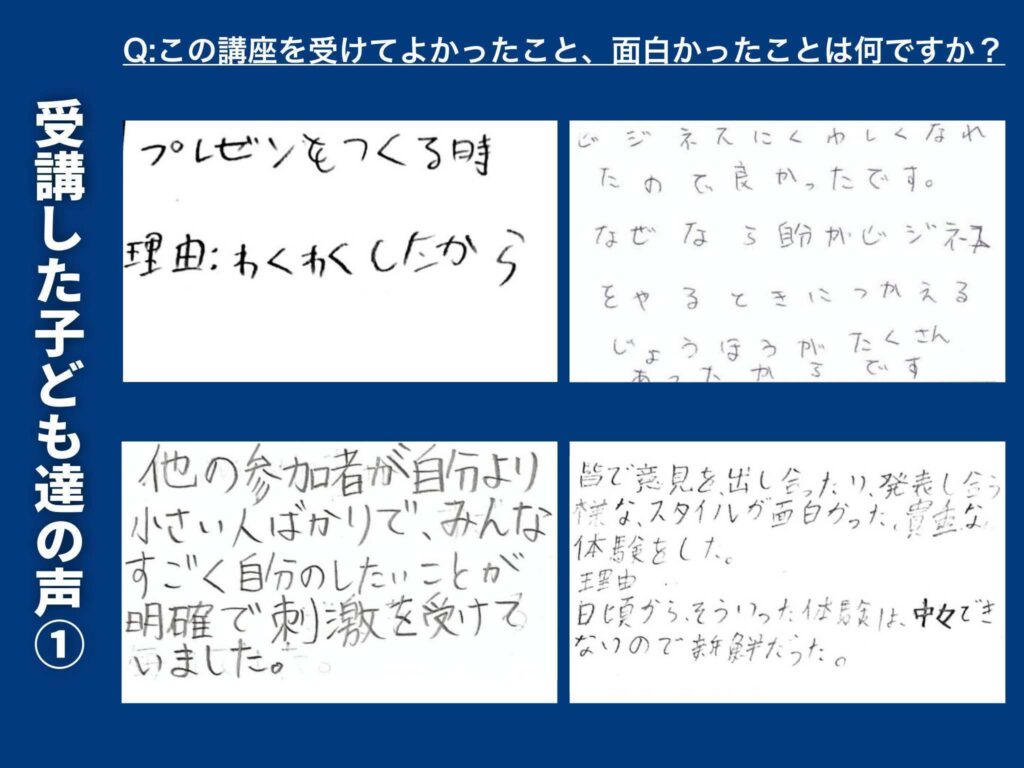 Q:この講座を受けてよかったこと、面白かったことは何ですか？
受講した子ども達の声①
プレゼンをつくる時
理由:わくわくしたから
ビジネスにくわしくなれ
たので良かったです。
なぜなら自分がビジネス
をやるときにつかえる
じょうほうがたくさん
あったからです
他の参加者が自分より
小さい人ばかりで、みんな
すごく自分のしたいことが
明確で刺激を受けて
いました。
皆で意見を、出し合ったり、発表し合う
様な、スタイルが面白かった、貴重な
体験をした。
理由
日頃から、そういった体験は、中々でき
ないので新鮮だった。